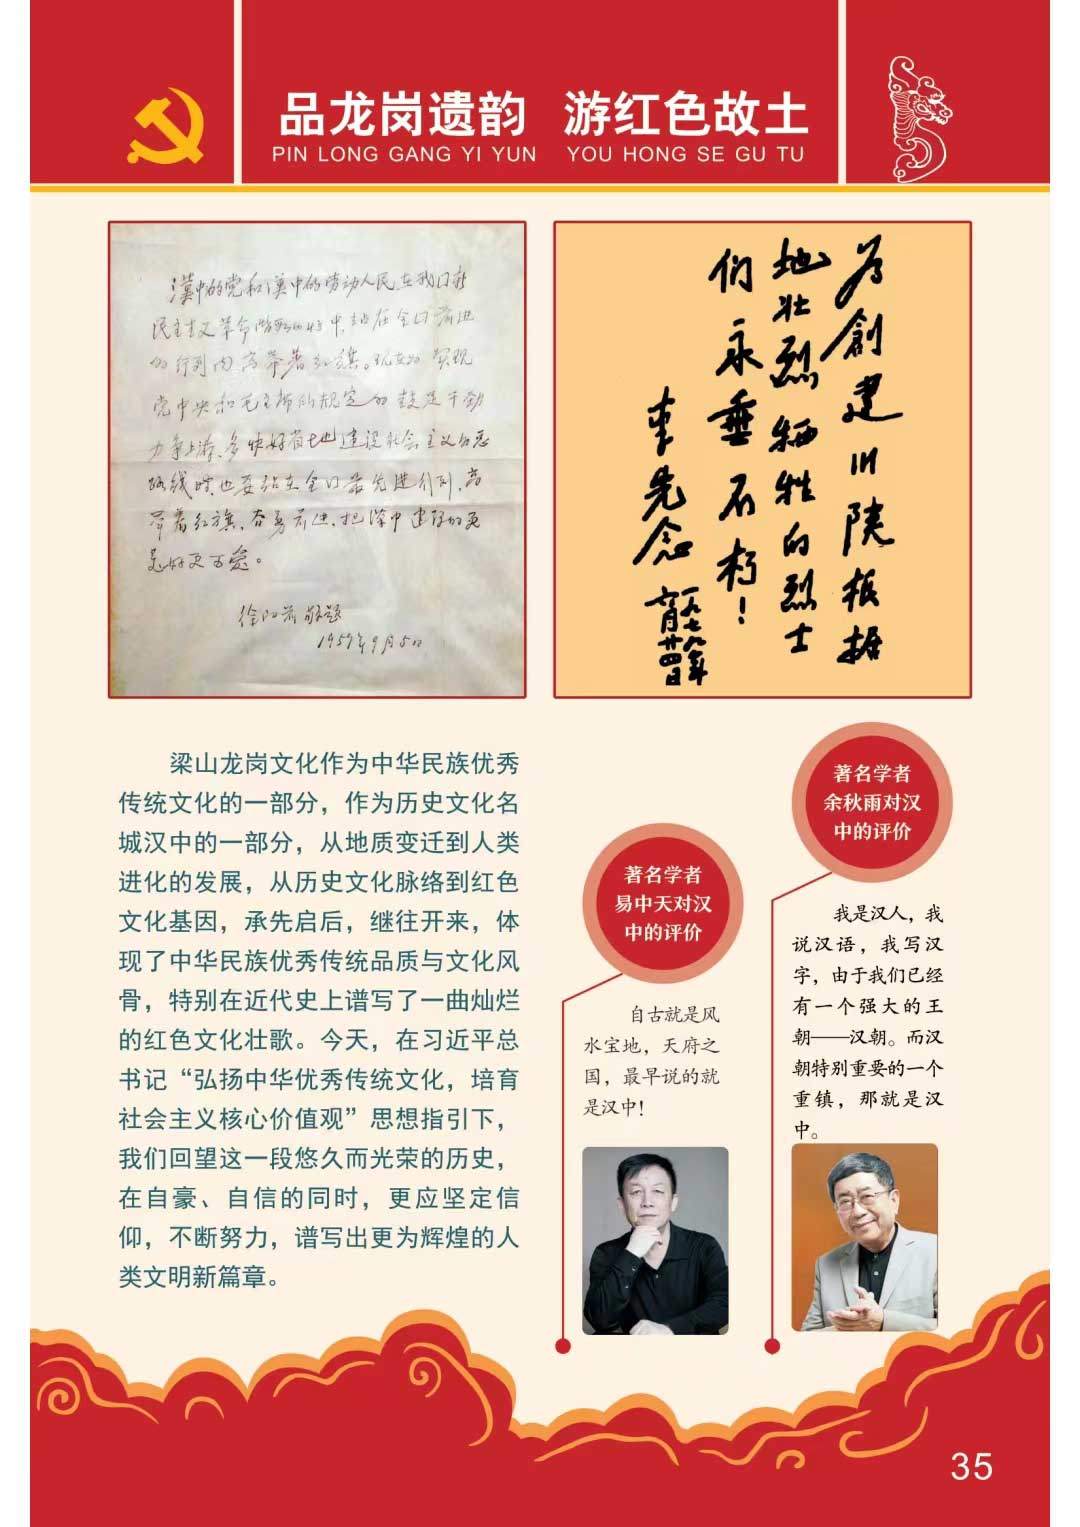 品龙岗遗韵 游红色故土
PIN LONG GANG YI YUN YOU HONG SE GU TU
汉中的党和汉中的劳动人民在我国新
民主主义革命阶段的时中,站在全国前进
的行列内高举着红旗。现在为实现
党中央和毛主席所规定的鼓足干劲
力争上游、多快好省地建设社会主义的总
路线时也要站在全国最先进行列,高
举着红旗,奋勇前进,把汉中建设的更
美好更可爱。
徐向前敬题
1959年9月5日
为創建川陕根据
地壮烈牺牲的烈士
们永垂不朽!
李先念
一九七九年
六月廿四日
梁山龙岗文化作为中华民族优秀
传统文化的一部分,作为历史文化名
城汉中的一部分,从地质变迁到人类
进化的发展,从历史文化脉络到红色
文化基因,承先启后,继往开来,体
现了中华民族优秀传统品质与文化风
骨,特别在近代史上谱写了一曲灿烂
的红色文化壮歌。今天,在习近平总
书记“弘扬中华优秀传统文化,培育
社会主义核心价值观”思想指引下,
我们回望这一段悠久而光荣的历史,
在自豪、自信的同时,更应坚定信
仰,不断努力,谱写出更为辉煌的人
类文明新篇章。
著名学者
易中天对汉
中的评价
自古就是风
水宝地,天府之
国,最早说的就
是汉中!
著名学者
余秋雨对汉
中的评价
我是汉人,我
说汉语,我写汉
字,由于我们已经
有一个强大的王
朝——汉朝。而汉
朝特别重要的一个
重镇,那就是汉
中。
35